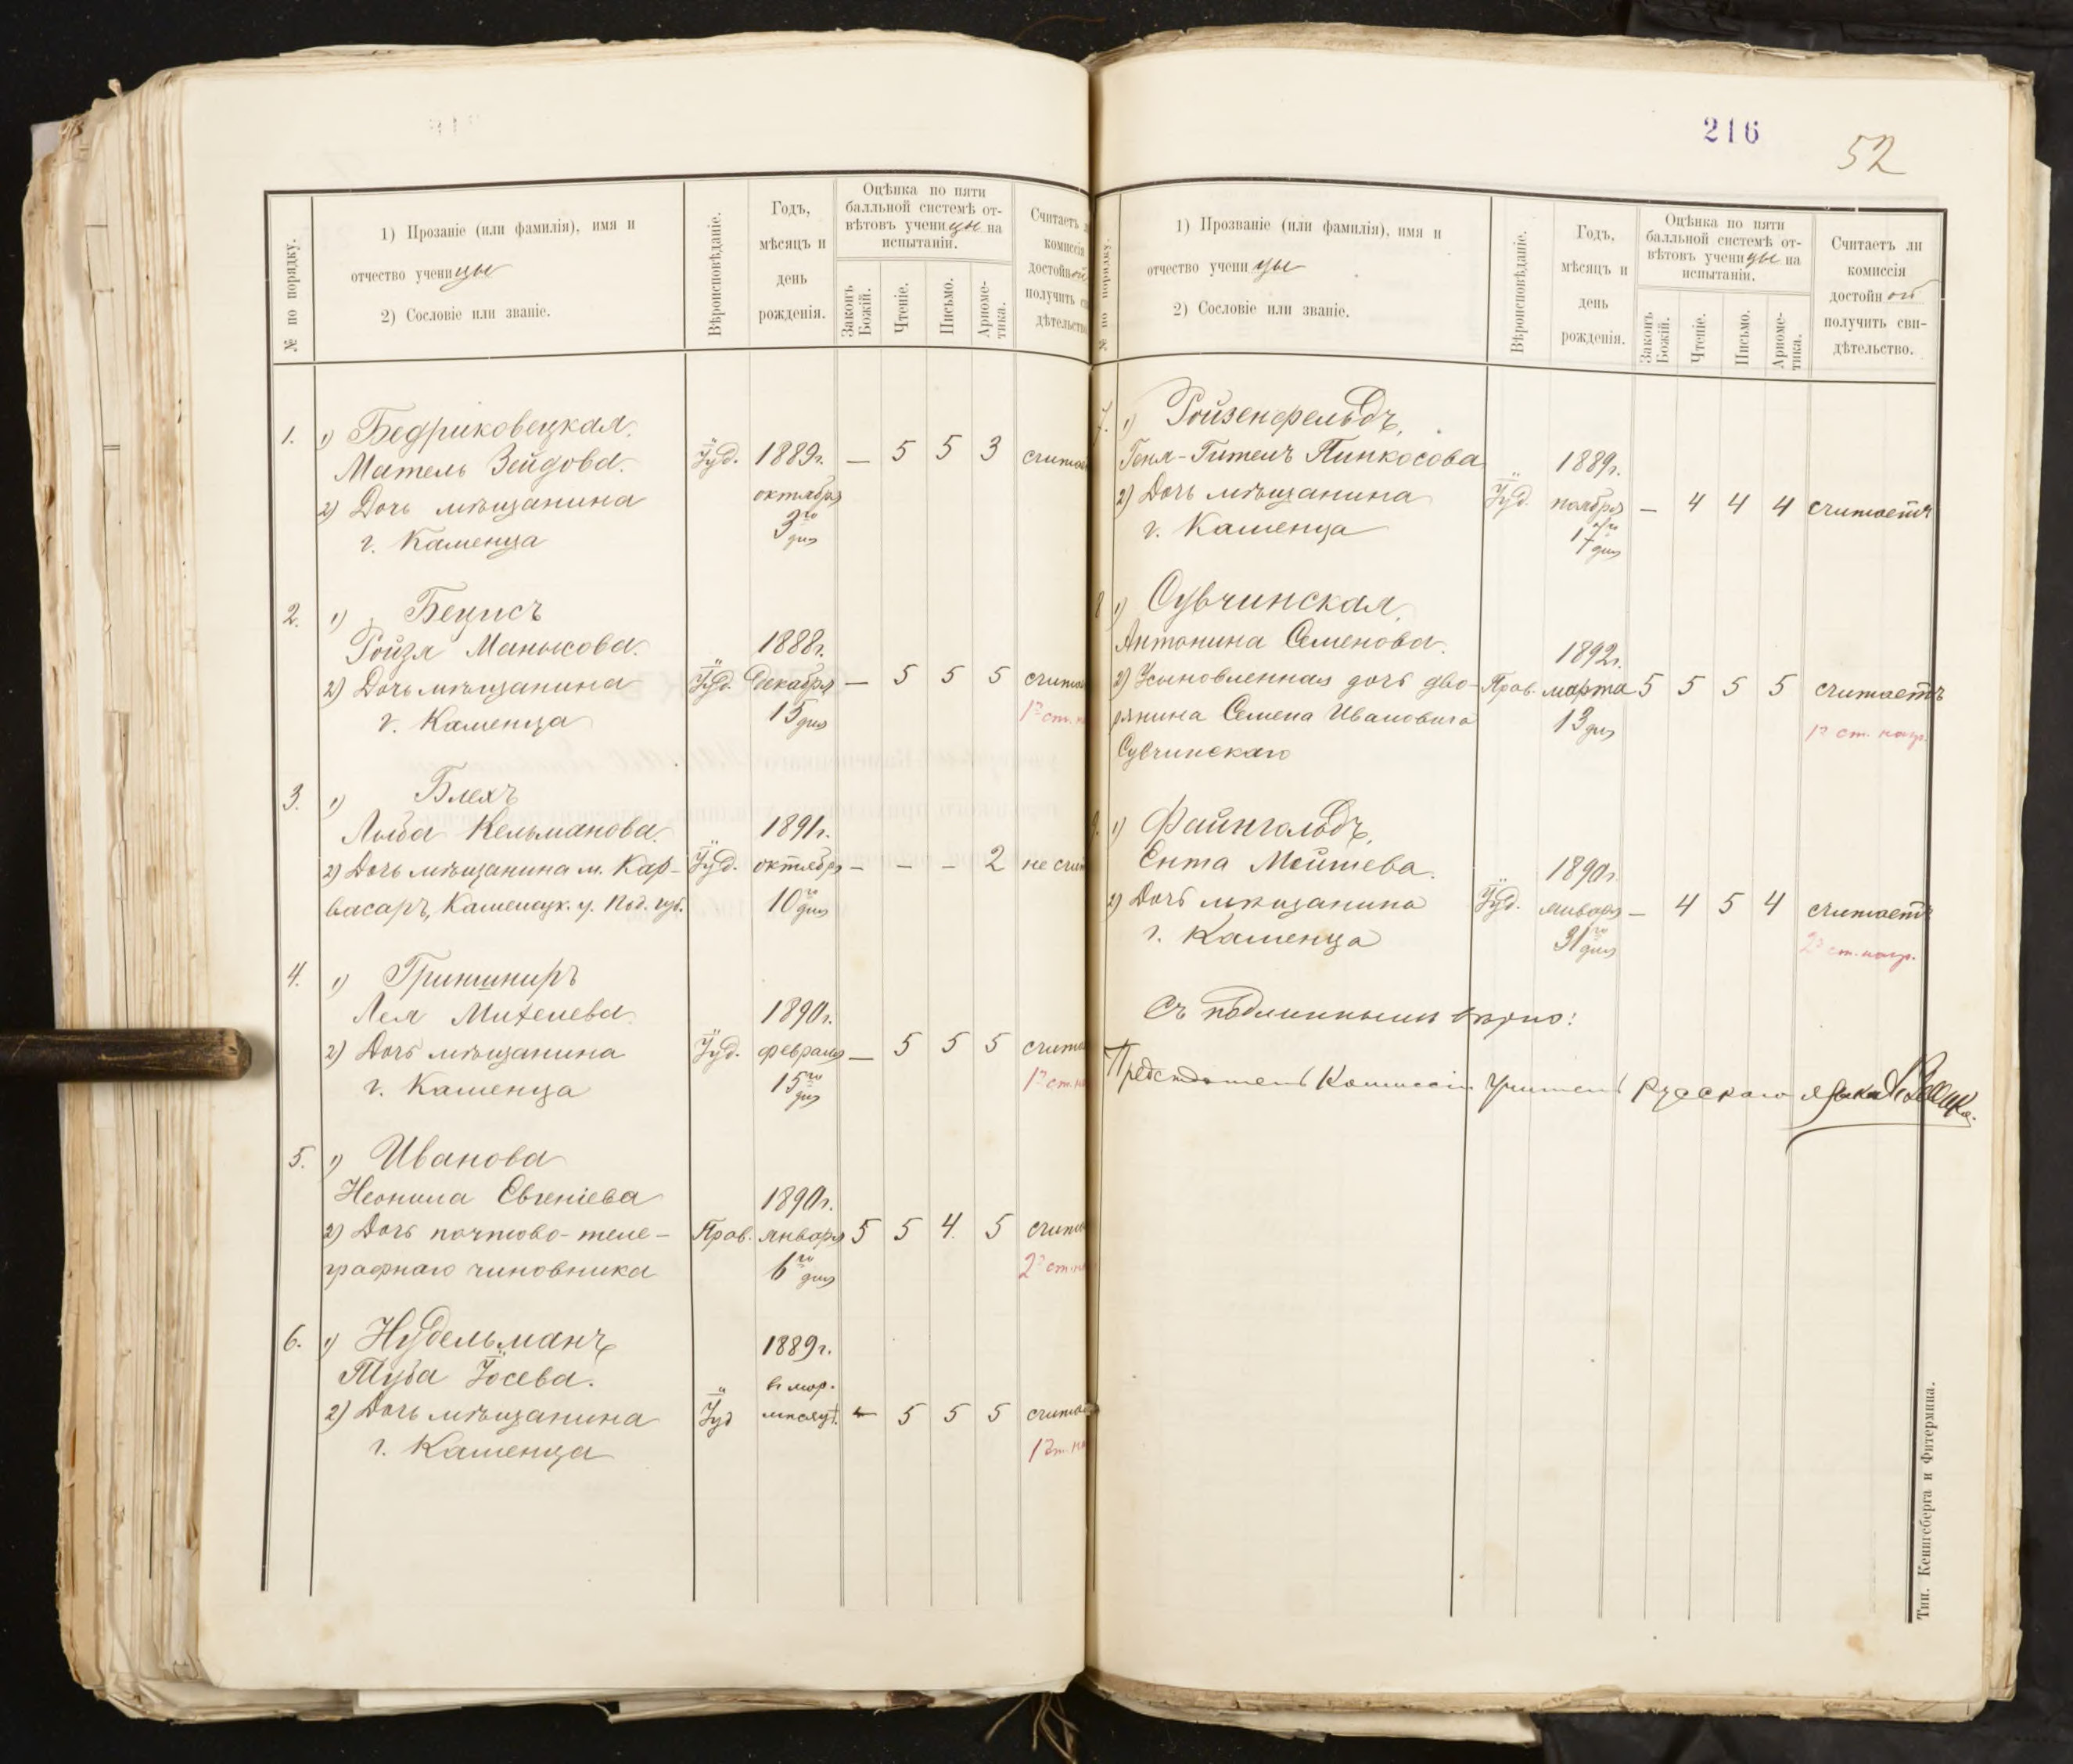 № по порядку.
1) Прозаніе (или фамилія), имя и
отчество ученицы
2) Сословіе или званіе.
Вѣроисповѣданіе.
Годъ,
мѣсяцъ и
день
рожденія.
Оцѣнка по пяти
балльной системѣ от-
вѣтовъ ученицы на
испытаніи.
Законъ
Божій.
Чтеніе.
Письмо.
Ариѳме-
тика.
Считаетъ
комиссія
достойной
получить
дѣтельство
1. 1) Бедриковецкая,
Матель Зейдова.
2) Дочь мѣщанина
г. Каменца
Іуд.
1889г.
октября
3го
дня
— 5 5 3
2. 1) Бецисъ
Ройзя Маньисова.
2) Дочь мѣщанина
г. Каменца
Іуд.
1888г.
декабря
15 дня
— 5 5 5
1й ст.
3. 1) Блехъ
Люба Кельманова
2) Дочь мѣщанина м. Кар-
васаръ, Каменецк. у. Под. губ.
Іуд.
1891г.
октября
10го дня
— — — 2 не
4. 1) Гриншпиръ
Лея Михелева
2) Дочь мѣщанина
г. Каменца
Іуд.
1890г.
февраля
15го
дня
— 5 5 5
1й ст.
5. 1) Иванова
Неонила Евгеніева
2) Дочь почтово-теле-
графнаго чиновника
Прав.
1890г.
января
6го дня
5 5 4. 5
2й ст.
6. 1) Нудельманъ
Туба Іосева.
2) Дочь мѣщанина
г. Каменца
Іуд
1889г.
въ мар.
мѣсяцѣ.
— 5 5 5
216
52
№ по порядку.
1) Прозваніе (или фамилія), имя и
отчество ученицы
2) Сословіе или званіе.
Вѣроисповѣданіе.
Годъ,
мѣсяцъ и
день
рожденія.
Оцѣнка по пяти
балльной системѣ от-
вѣтовъ ученицы на
испытаніи.
Законъ
Божій.
Чтеніе.
Письмо.
Ариѳме-
тика.
Считаетъ ли
комиссія
достойной
получить сви-
дѣтельство.
7. 1) Ройзенфельдъ,
Геня-Гитель Пинкосова
2) Дочь мѣщанина
г. Каменца
Іуд.
1889г.
ноября
17го
дня
— 4 4 4 считаетъ
8 1) Сувчинская,
Антонина Семенова.
2) Усыновленная дочь дво-
рянина Семена Ивановича
Сувчинскаго
Прав.
1892г.
марта
13 дня
5 5 5 5 считаетъ
1й ст. нагр.
9. 1) Файнгольдъ,
Ента Мойшева.
2) Дочь мѣщанина
г. Каменца
Іуд.
1890г.
января
31го
дня
— 4 5 4 считаетъ
2й ст. нагр.
Съ подлиннымъ вѣрно:
Предсѣдатель Комиссіи Учитель Русскаго языка
Тип. Кенигсберга и Фитермана.